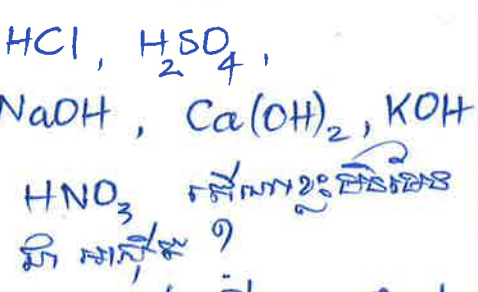 HCl, H₂SO₄,
NaOH, Ca(OH)₂, KOH
HNO₃ តើណាខ្លះមិនមែន
ជា អាស៊ីត ?